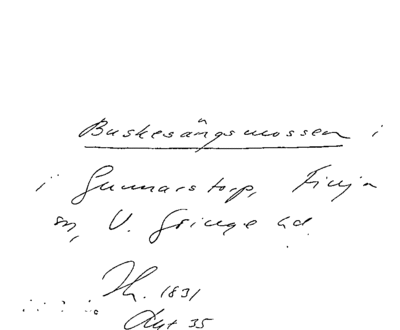 Buskesängsmossen i
i Gunnarstorp, Finja
sn, V. Göinge hd.
1831
Akt 35